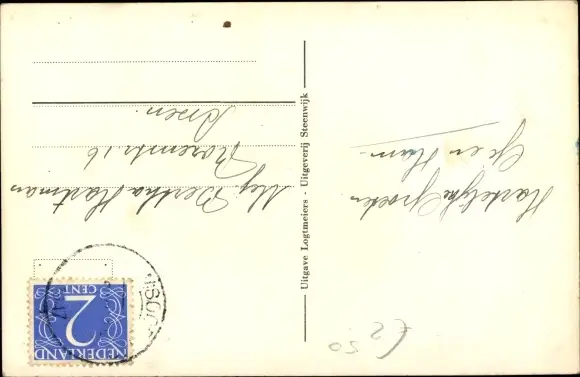 Hartelijke Groeten
Mej. Bertha Hartman
Rozenstr. 16
Assen.
Uitgave Logtmeiers - Uitgeverij Steenwijk
NEDERLAND
2
CENT
2 50